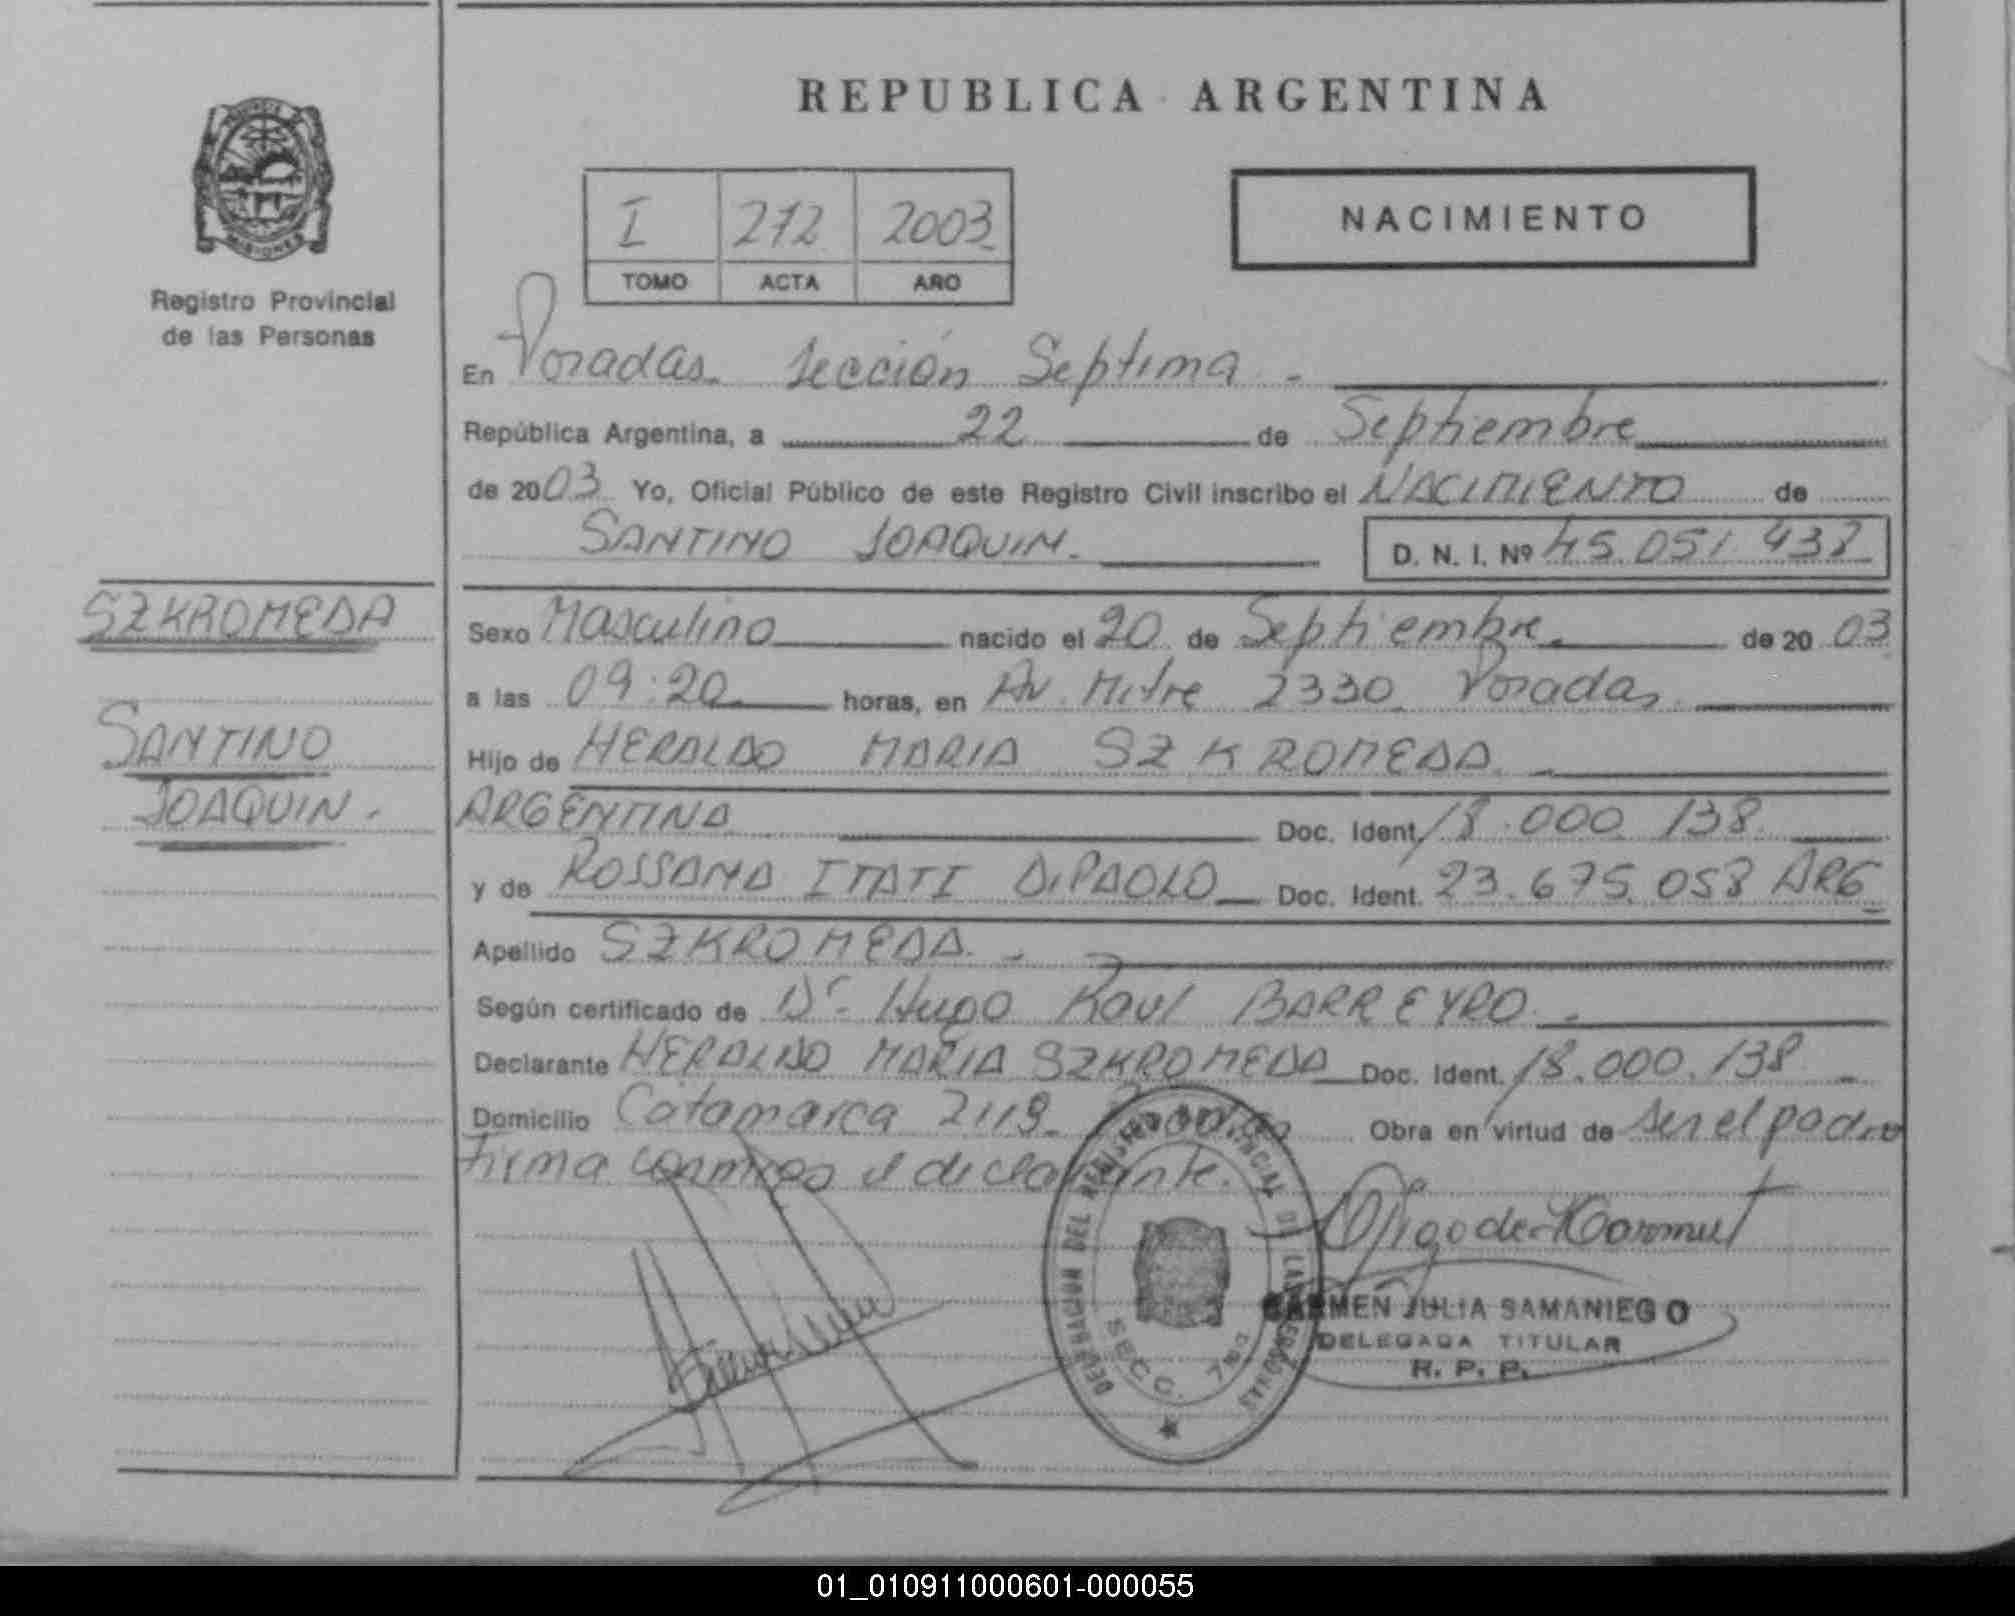 REPUBLICA ARGENTINA
PROVINCIA
MISIONES
Registro Provincial
de las Personas
I 272 2003
TOMO ACTA AÑO
NACIMIENTO
En Posadas. Sección Septima -
República Argentina, a 22 de Septiembre
de 2003 Yo, Oficial Público de este Registro Civil inscribo el NACIMIENTO de
SANTINO JOAQUIN. D. N. I. Nº 45.051.438
SZKROMEDA
SANTINO
JOAQUIN.
Sexo Masculino nacido el 20 de Septiembre. de 2003
a las 09:20 horas, en Av. Mitre 2330. Posadas.
Hijo de HERALDO MARIA SZKROMEDA.
ARGENTINA Doc. Ident. 18.000.138
y de ROSSANA ITATI DiPAOLO Doc. Ident. 23.675.058 ARG
Apellido SZKROMEDA. -
Según certificado de Dr. Hugo Raul BARREYRO. -
Declarante HERALDO MARIA SZKROMEDA Doc. Ident. 18.000.138 -
Domicilio Catamarca 2119. Posadas Obra en virtud de ser el padre
Firma conmigo el declarante.
DELEGACION DEL REGISTRO PROVINCIAL DE LAS PERSONAS
SECC. 7ma
CARMEN JULIA SAMANIEGO
DELEGADA TITULAR
R. P. P.
01_010911000601-000055